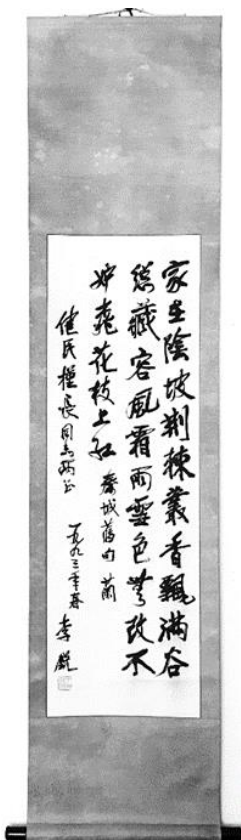 家在陰坡荊棘叢香飄滿谷
總藏容風霜雨雪色無改不
妒桃花枝上紅 秦城舊句 蘭
民 長同志 正
一九九三年春 李銳